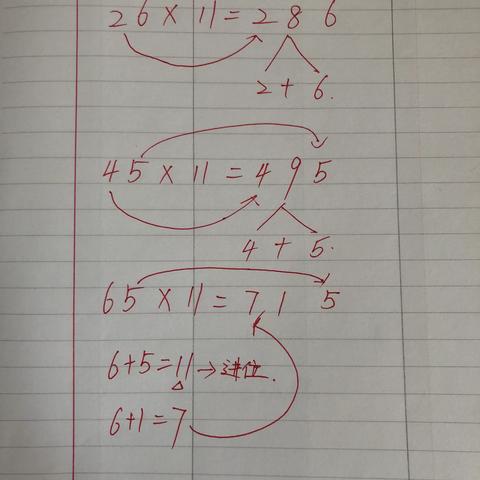 26×11=286
2+6.
45×11=495
4+5.
65×11=715
6+5=11→进位.
6+1=7